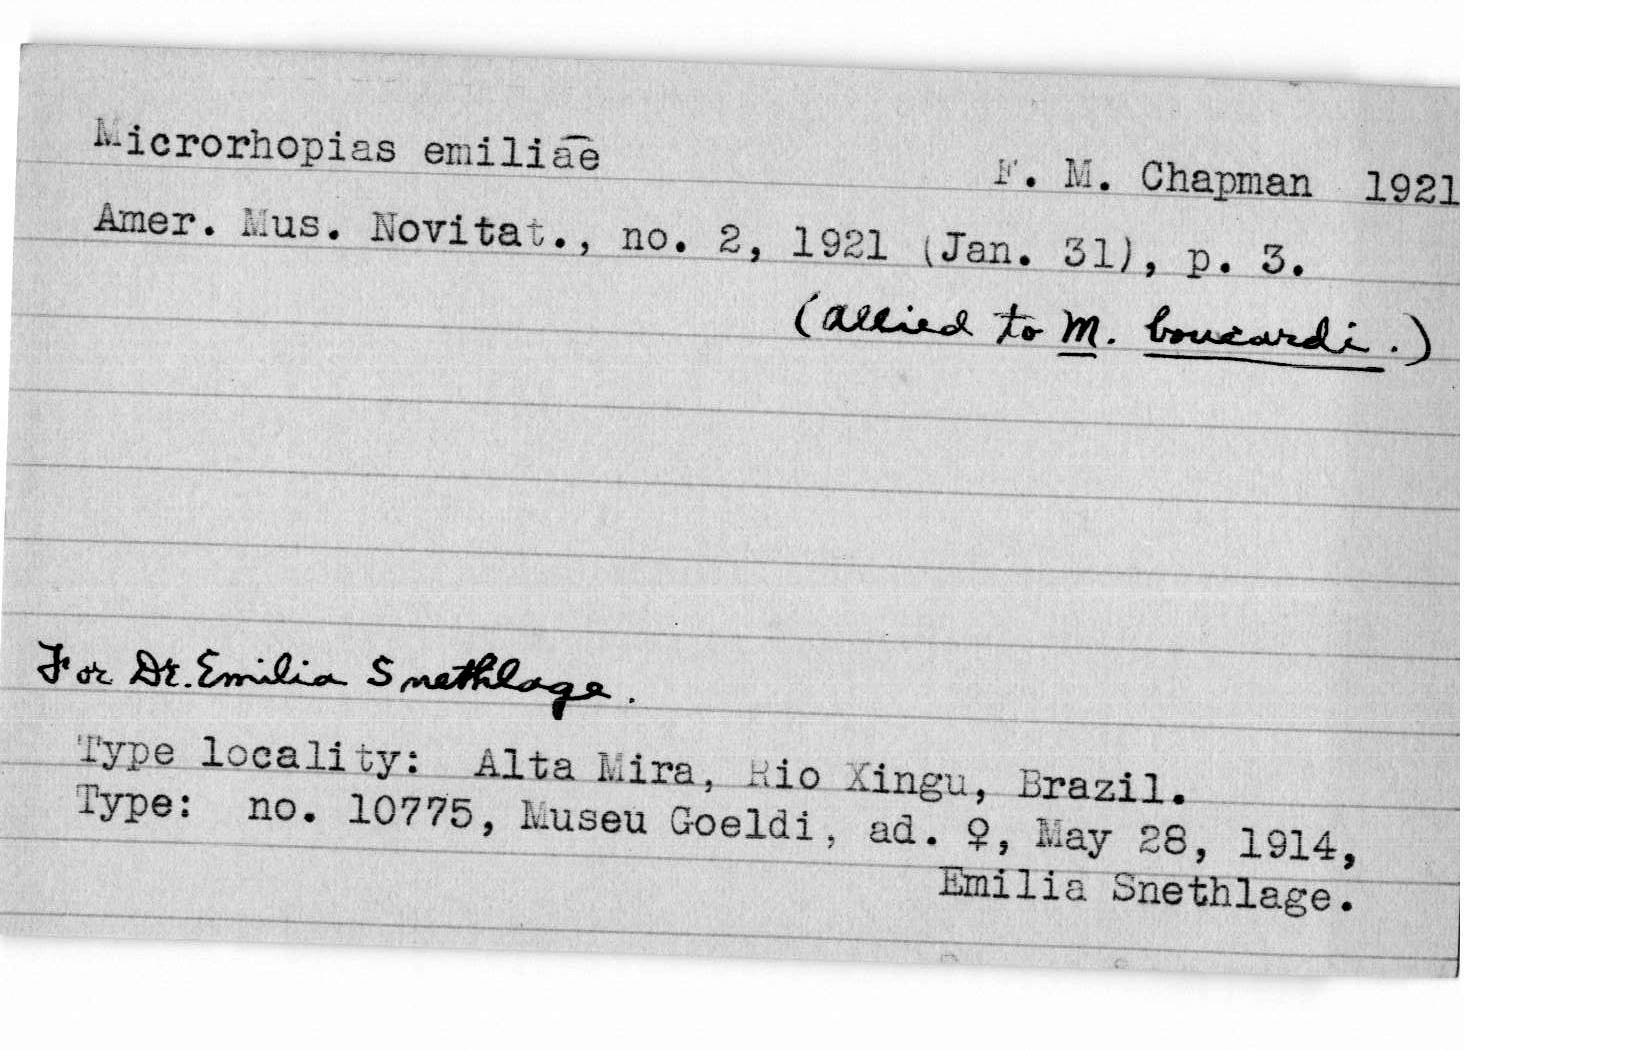 Microrhopias emiliae
F. M. Chapman 1921
Amer. Mus. Novitat., no. 2, 1921 (Jan. 31), p. 3.
(allied to M. boucardi.)
For Dr. Emilia Snethlage.
Type locality: Alta Mira, Rio Xingu, Brazil.
Type: no. 10775, Museu Goeldi, ad. ♀, May 28, 1914,
Emilia Snethlage.